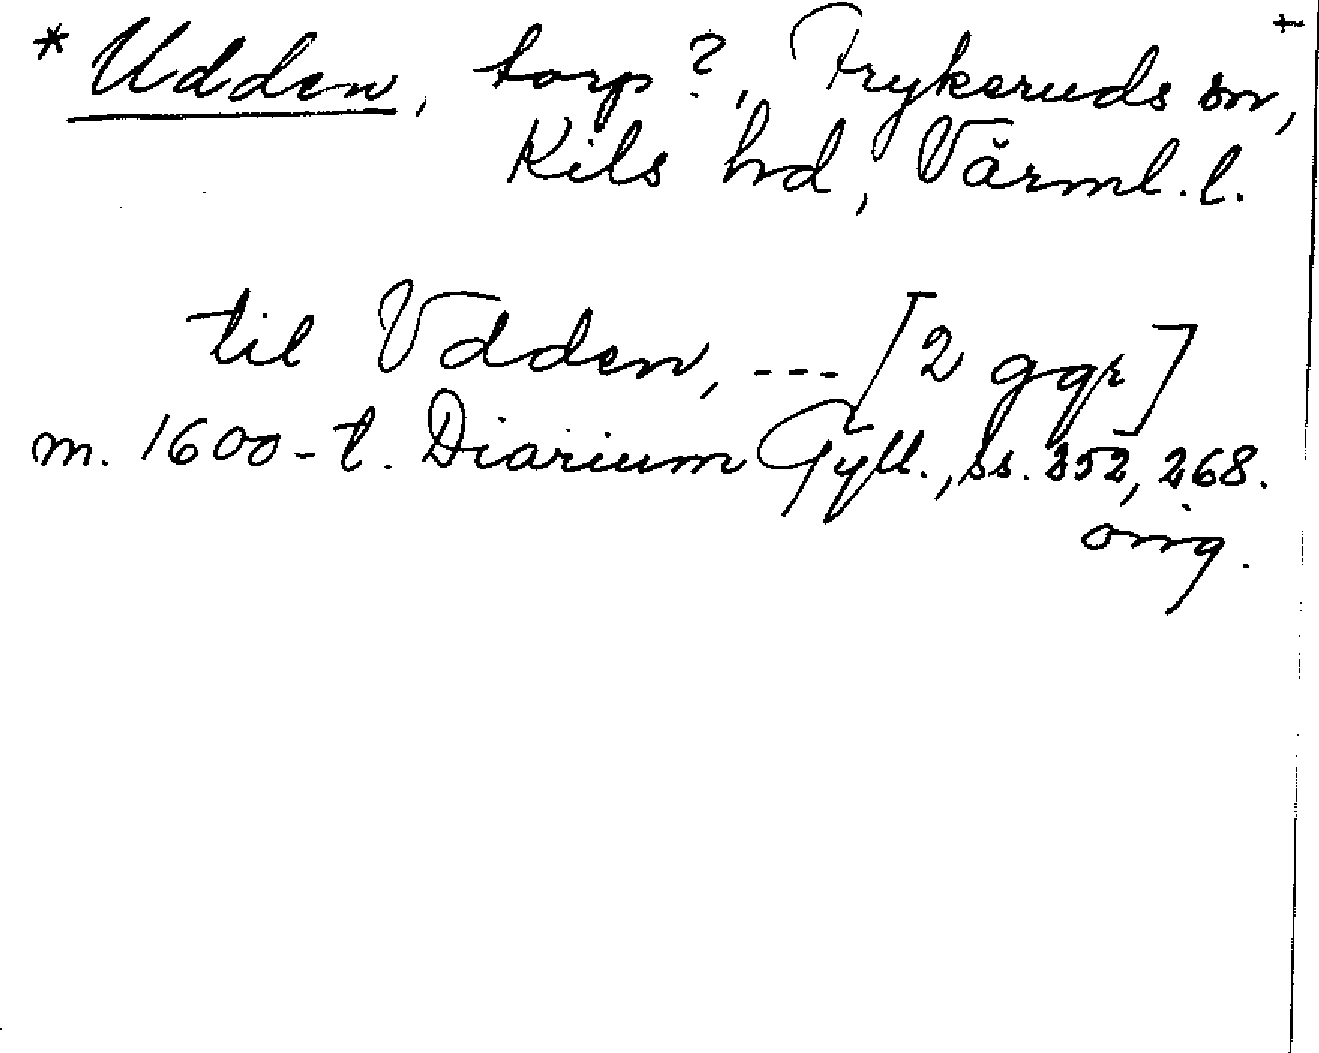 * Udden, torp?, Frykeruds sn, +
Kils hd, Värml. l.
til Vdden, --- [2 ggr]
m. 1600-t. Diarium Gyll., ss. 252, 268.
orig.